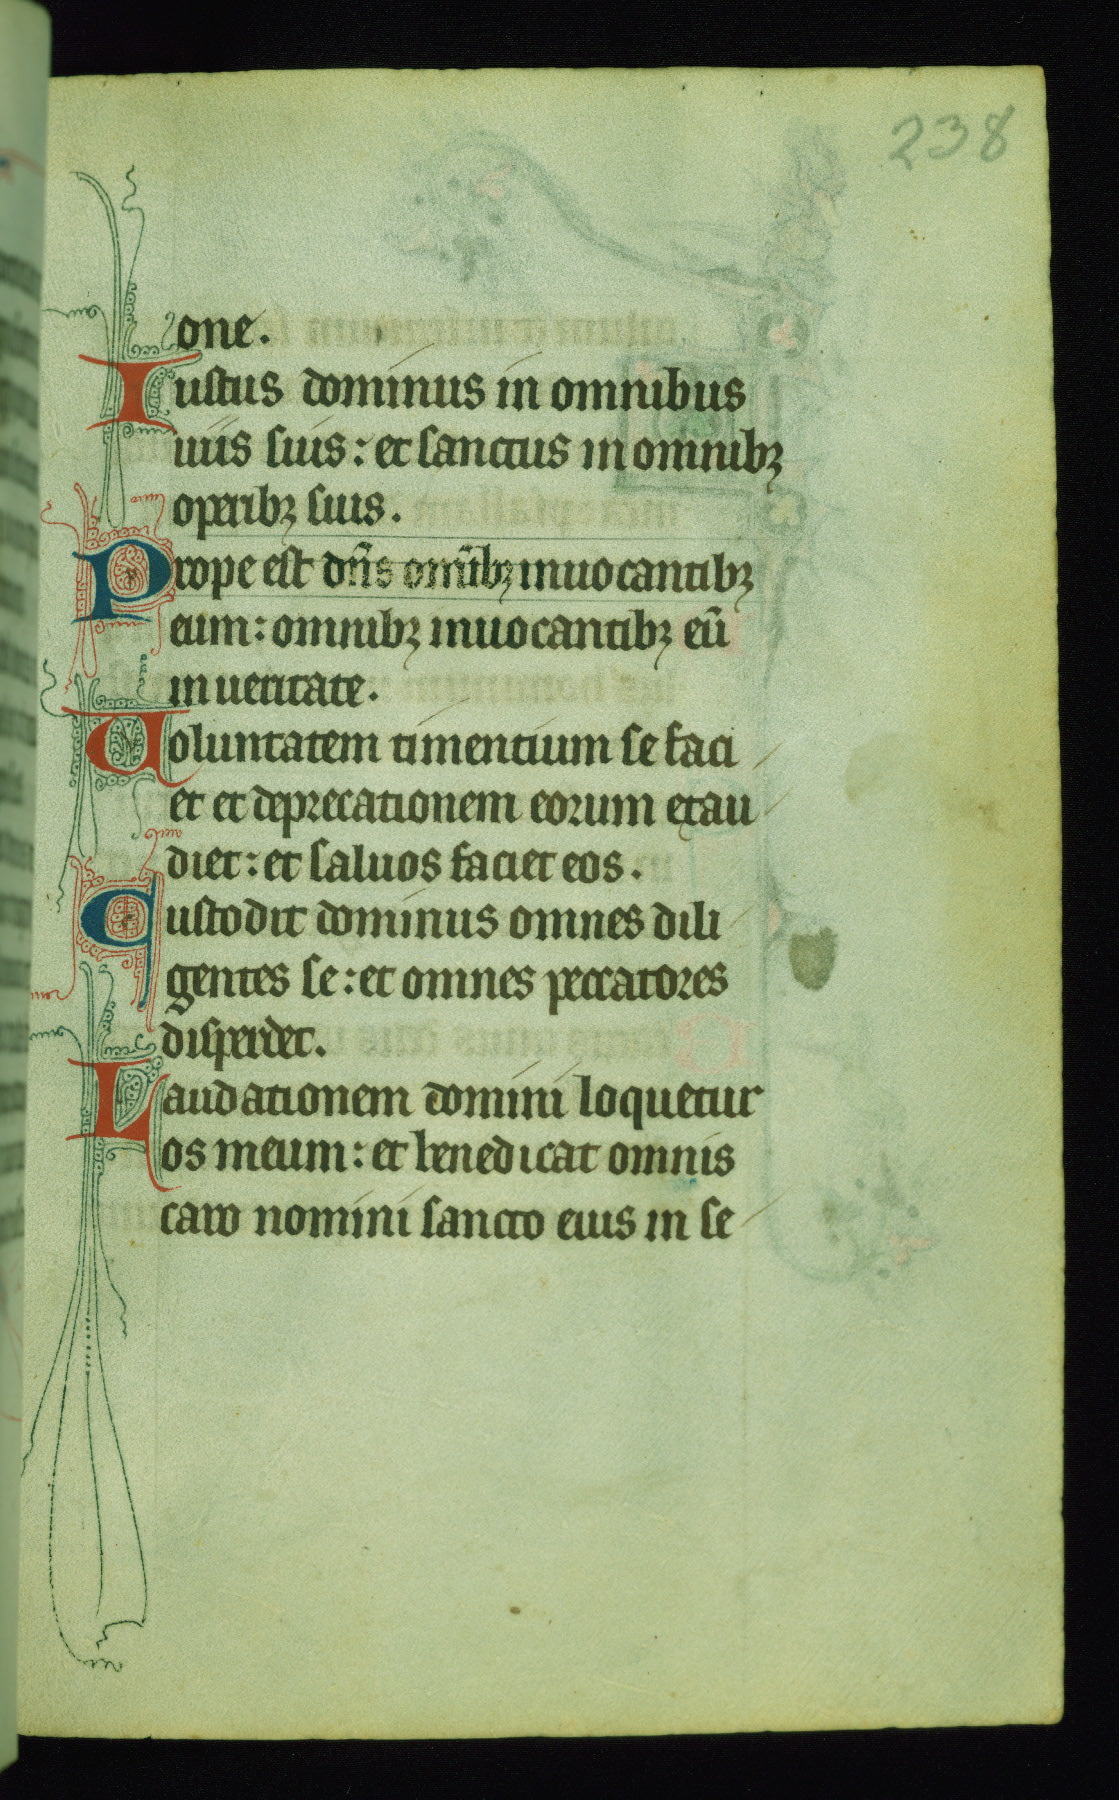 238
one.
Iustus dominus in omnibus
uiis suis: et sanctus in omnibꝫ
operibꝫ suis.
Prope est dn̄s om̄ibꝫ inuocantibꝫ
eum: omnibꝫ inuocantibꝫ eū
in ueritate.
Uoluntatem timentium se faci
et et deprecationem eorum exau
diet: et saluos faciet eos.
Custodit dominus omnes dili
gentes se: et omnes peccatores
disperdet.
Laudationem domini loquetur
os meum: et benedicat omnis
caro nomini sancto eius in se